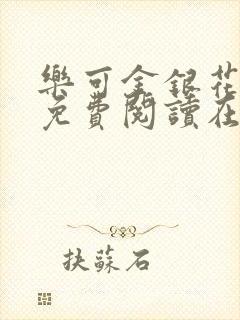 樂可金銀花
免費閱讀在
抉蘇石